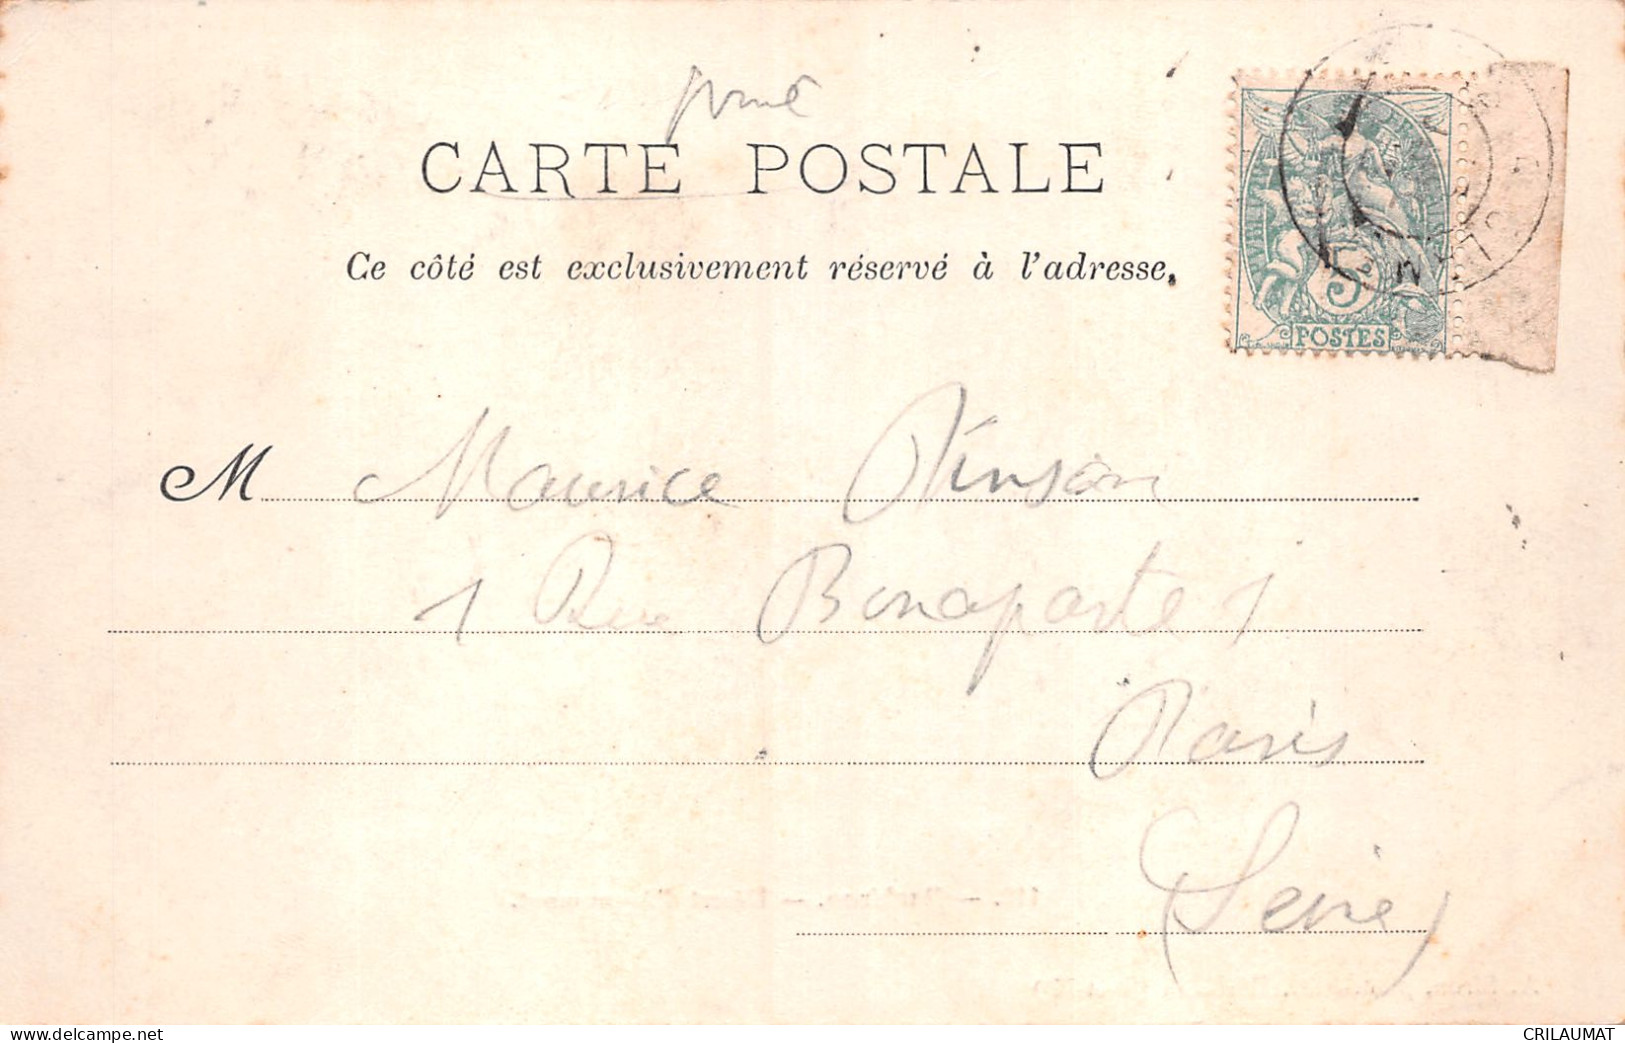 CARTE POSTALE
Ce côté est exclusivement réservé à l'adresse.
5
POSTES
M Maurice Vinson
1 Rue Bonaparte 1
Paris
(Seine)
delcampe.net
CRILAUMAT